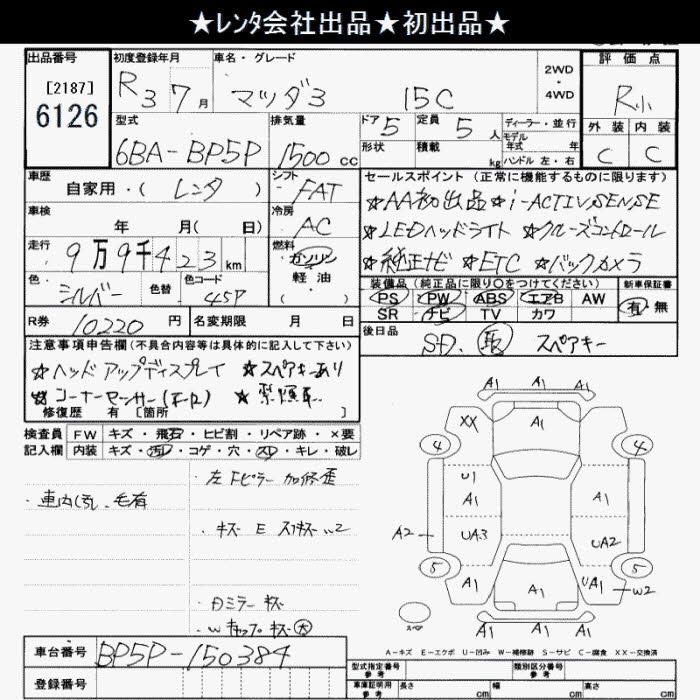 ★レンタ会社出品★初出品★
出品番号 初度登録年月 車名・グレード 評価点
[2187] 6126
R3 7月 マツダ3 15C 2WD・4WD R小
型式 排気量 ドア 5 定員 5人 ディーラー・並行 外装 内装
6BA-BP5P 1500cc 形状 積載 kg モデル年式 年 ハンドル 左・右 C C
車歴 シフト セールスポイント (正常に機能するものに限ります)
自家用・( レンタ ) FAT ★AA初出品 ★i-ACTIVSENSE
車検 冷房
年 月( 日) AC ★LEDヘッドライト ★クルーズコントロール
走行 燃料
9万9千423km ガソリン ★純正ナビ ★ETC ★バックカメラ
色 色替 色コード 軽油 装備品 (純正品に限り○をつけてください) 新車保証書
シルバー 45P ( ) PS PW ABS エアB AW 有・無
SR ナビ TV カワ
R券 10220円 名変期限 月 日 後日品
注意事項申告欄(不具合内容等は具体的に記入して下さい) SD. 取 スペアキー
★ヘッドアップディスプレイ ★スペアキーあり
★コーナーセンサー
修復歴 有 [箇所 ]
検査員 FW キズ・飛石・ヒビ割・リペア跡・×要
記入欄 内装 キズ・汚レ・コゲ・穴・スレ・キレ・破レ
左Fピラー 加修歪
・車内汚れ、毛有
・キズ E スリキズ W2
・白ミラーキズ
・Wキャップキズ大
A1 A1 A1
XX A1
4 4
U1
A1 A1
A2 UA3 UA2
5 5
A1 A1 UA1 W2
スペア
A1 A1 A1
A-キズ E-エクボ U-凹み W-補修跡 S-サビ C-腐食 XX-交換済
車台番号 BP5P-150384
登録番号
型式指定番号 参考 類別区分番号 参考
車庫証明用 参考 長さ cm 幅 cm 高さ cm